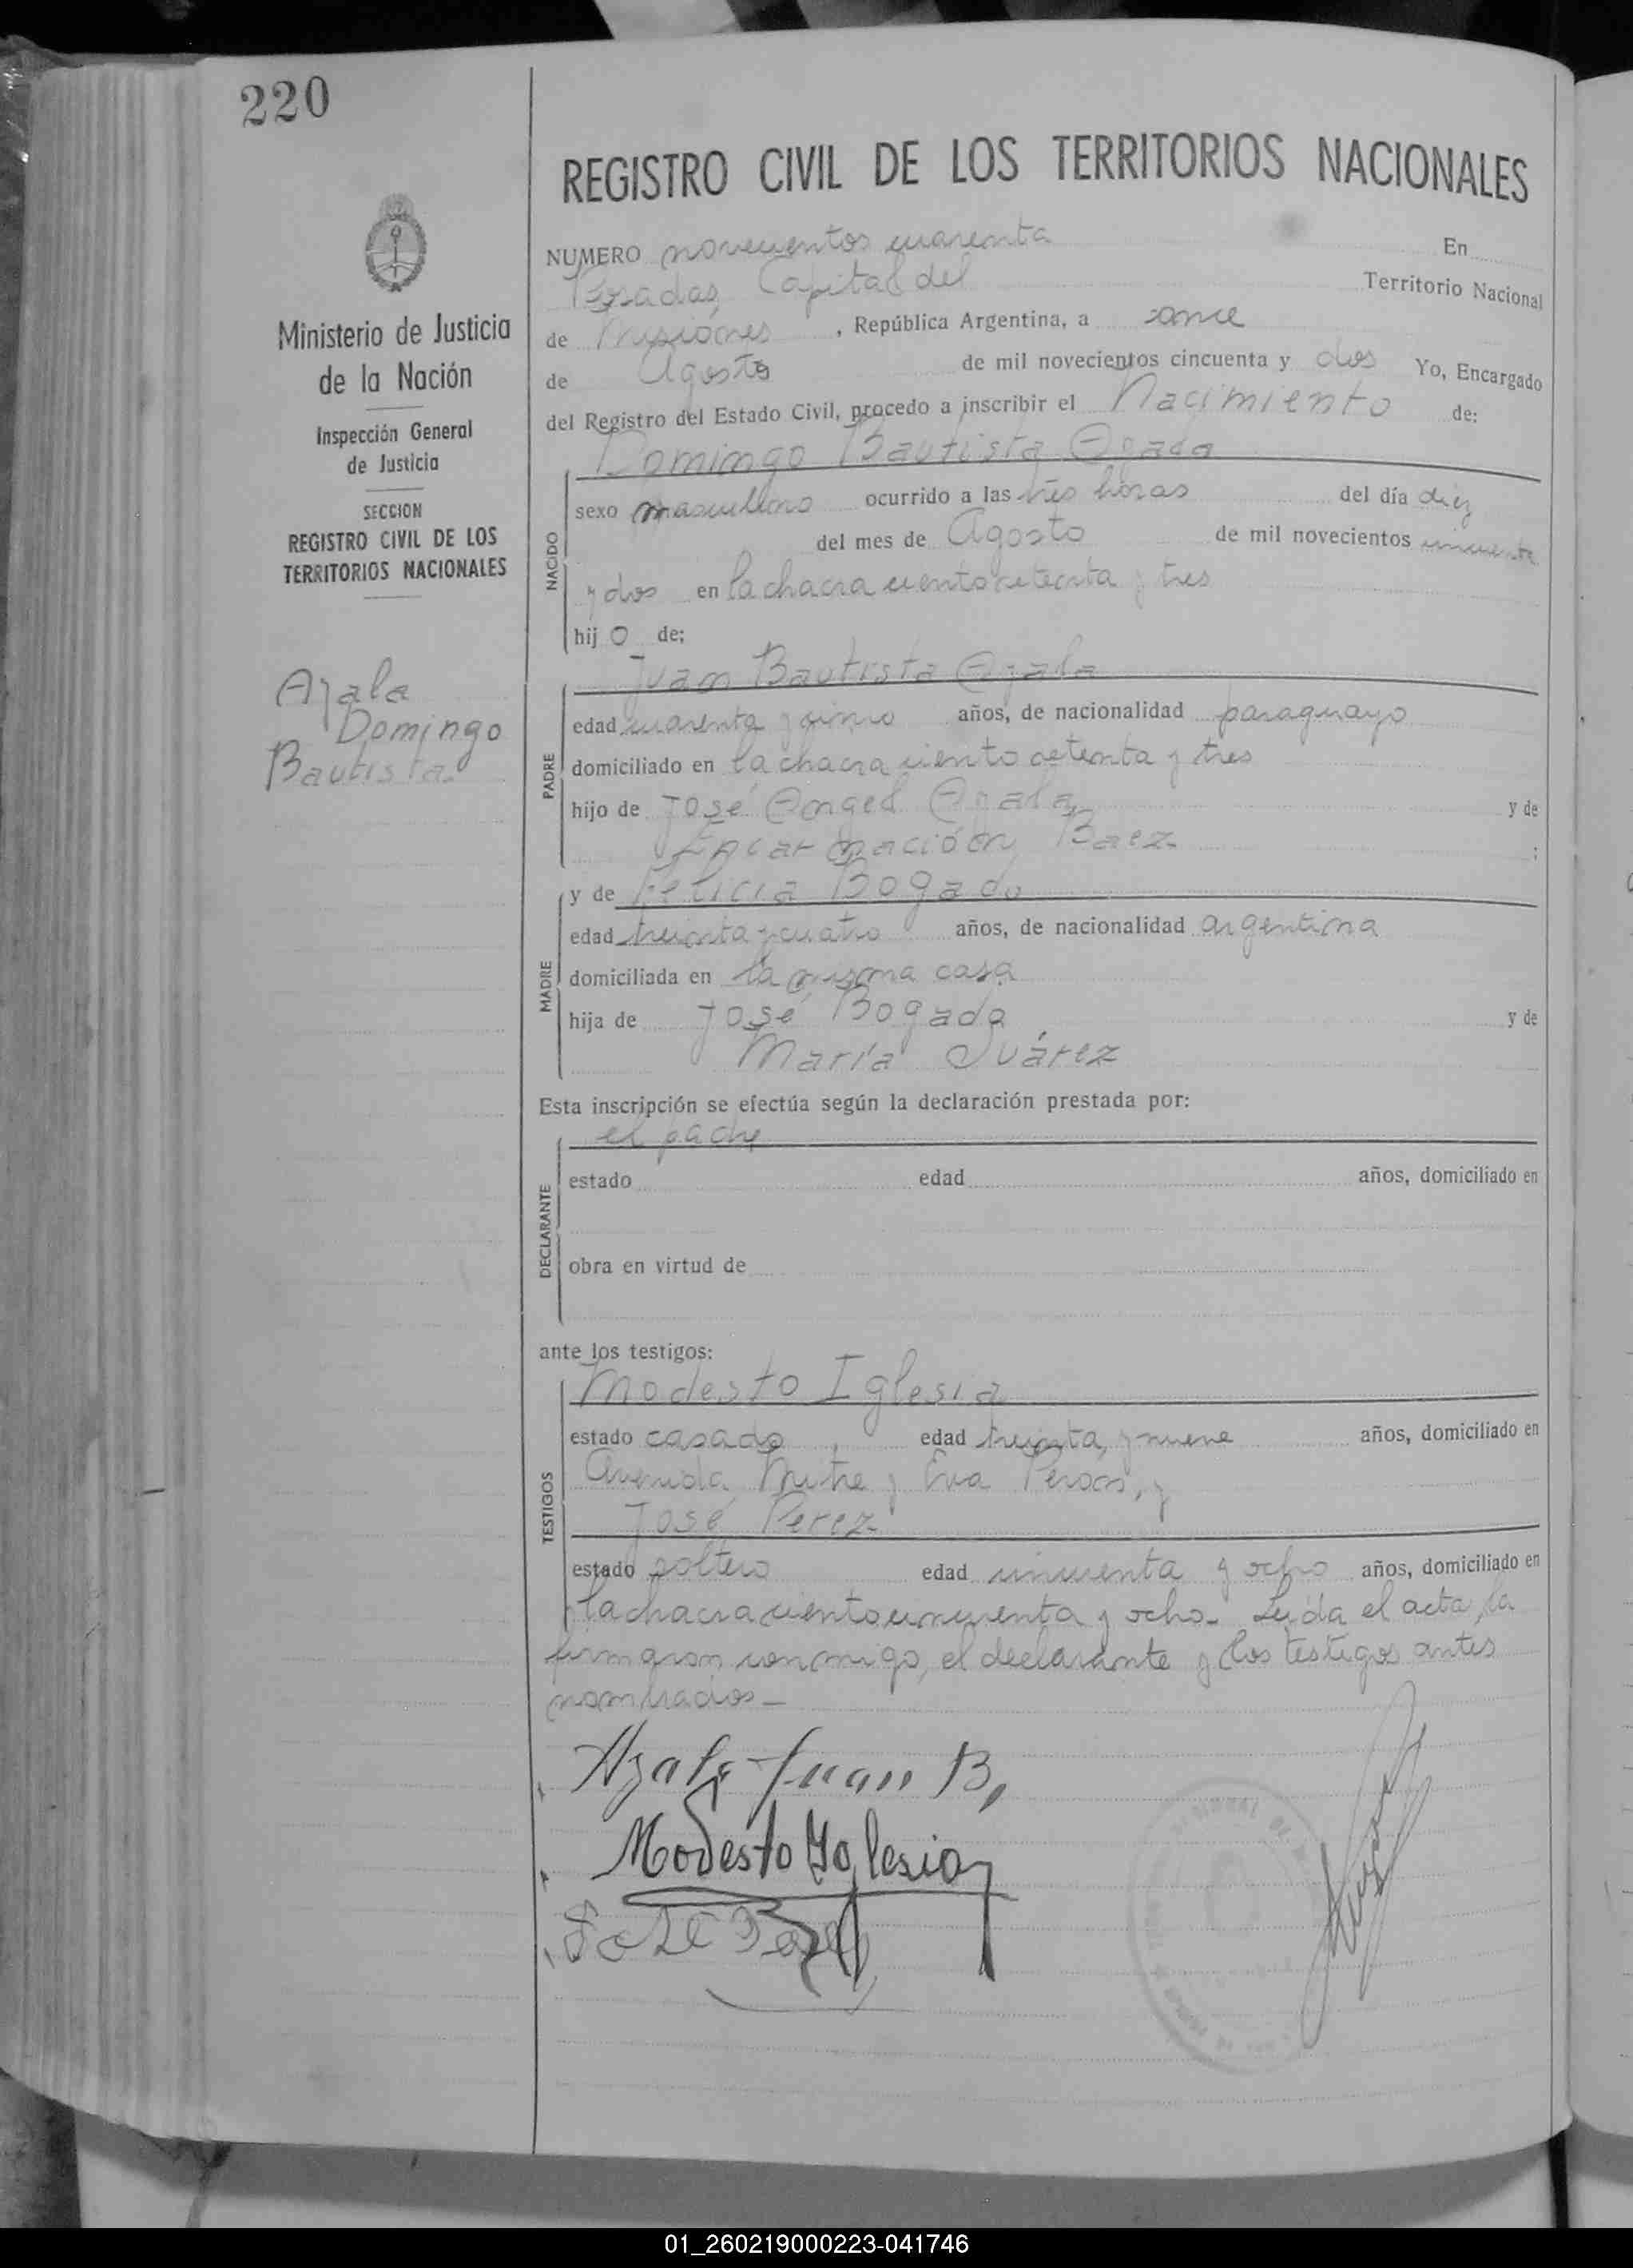 220
REGISTRO CIVIL DE LOS TERRITORIOS NACIONALES
Ministerio de Justicia
de la Nación
Inspección General
de Justicia
SECCION
REGISTRO CIVIL DE LOS
TERRITORIOS NACIONALES
Ayala
Domingo
Bautista
NUMERO novecientos cuarenta En
Posadas, Capital del Territorio Nacional
de Misiones, República Argentina, a once
de Agosto de mil novecientos cincuenta y dos Yo, Encargado
del Registro del Estado Civil, procedo a inscribir el Nacimiento de:
Domingo Bautista Ayala
NACIDO
sexo masculino ocurrido a las tres horas del día diez
del mes de Agosto de mil novecientos cincuenta
y dos en la chacra ciento setenta y tres
hijo de:
Juan Bautista Ayala
PADRE
edad cuarenta y cinco años, de nacionalidad paraguayo
domiciliado en la chacra ciento setenta y tres
hijo de José Angel Ayala y de
Encarnación Baez ;
MADRE
y de Felicia Bogado
edad treinta y cuatro años, de nacionalidad argentina
domiciliada en la misma casa
hija de José Bogado y de
María Suárez
Esta inscripción se efectúa según la declaración prestada por:
el padre
DECLARANTE
estado edad años, domiciliado en
obra en virtud de
ante los testigos:
TESTIGOS
Modesto Iglesia
estado casado edad treinta y nueve años, domiciliado en
Avenida Mitre y Eva Perón, y
José Perez
estado soltero edad cincuenta y ocho años, domiciliado en
la chacra ciento cincuenta y ocho. Leída el acta, la
firmaron conmigo, el declarante y los testigos antes
nombrados—
Ayala Juan B.
Modesto Yglesia
José Perez
01_260219000223-041746